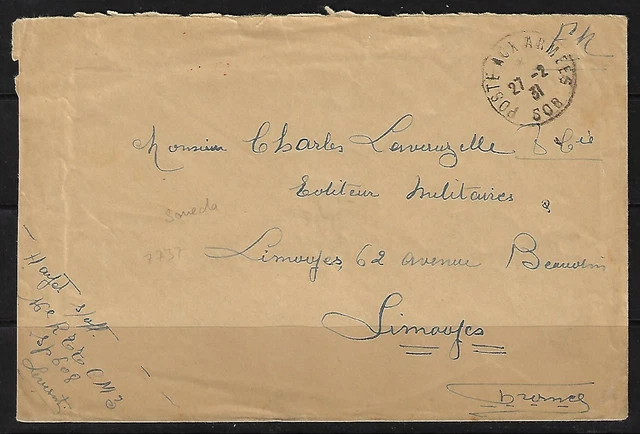 FM
POSTE AUX ARMÉES
27-2
31
608
Monsieur Charles Lavauzelle & Cie
Editeur Militaires
Limoges, 62 avenue Beaudin
Limoges
France
Smeda
7737
s/off.
16e R
CM3
SP 608
Levant